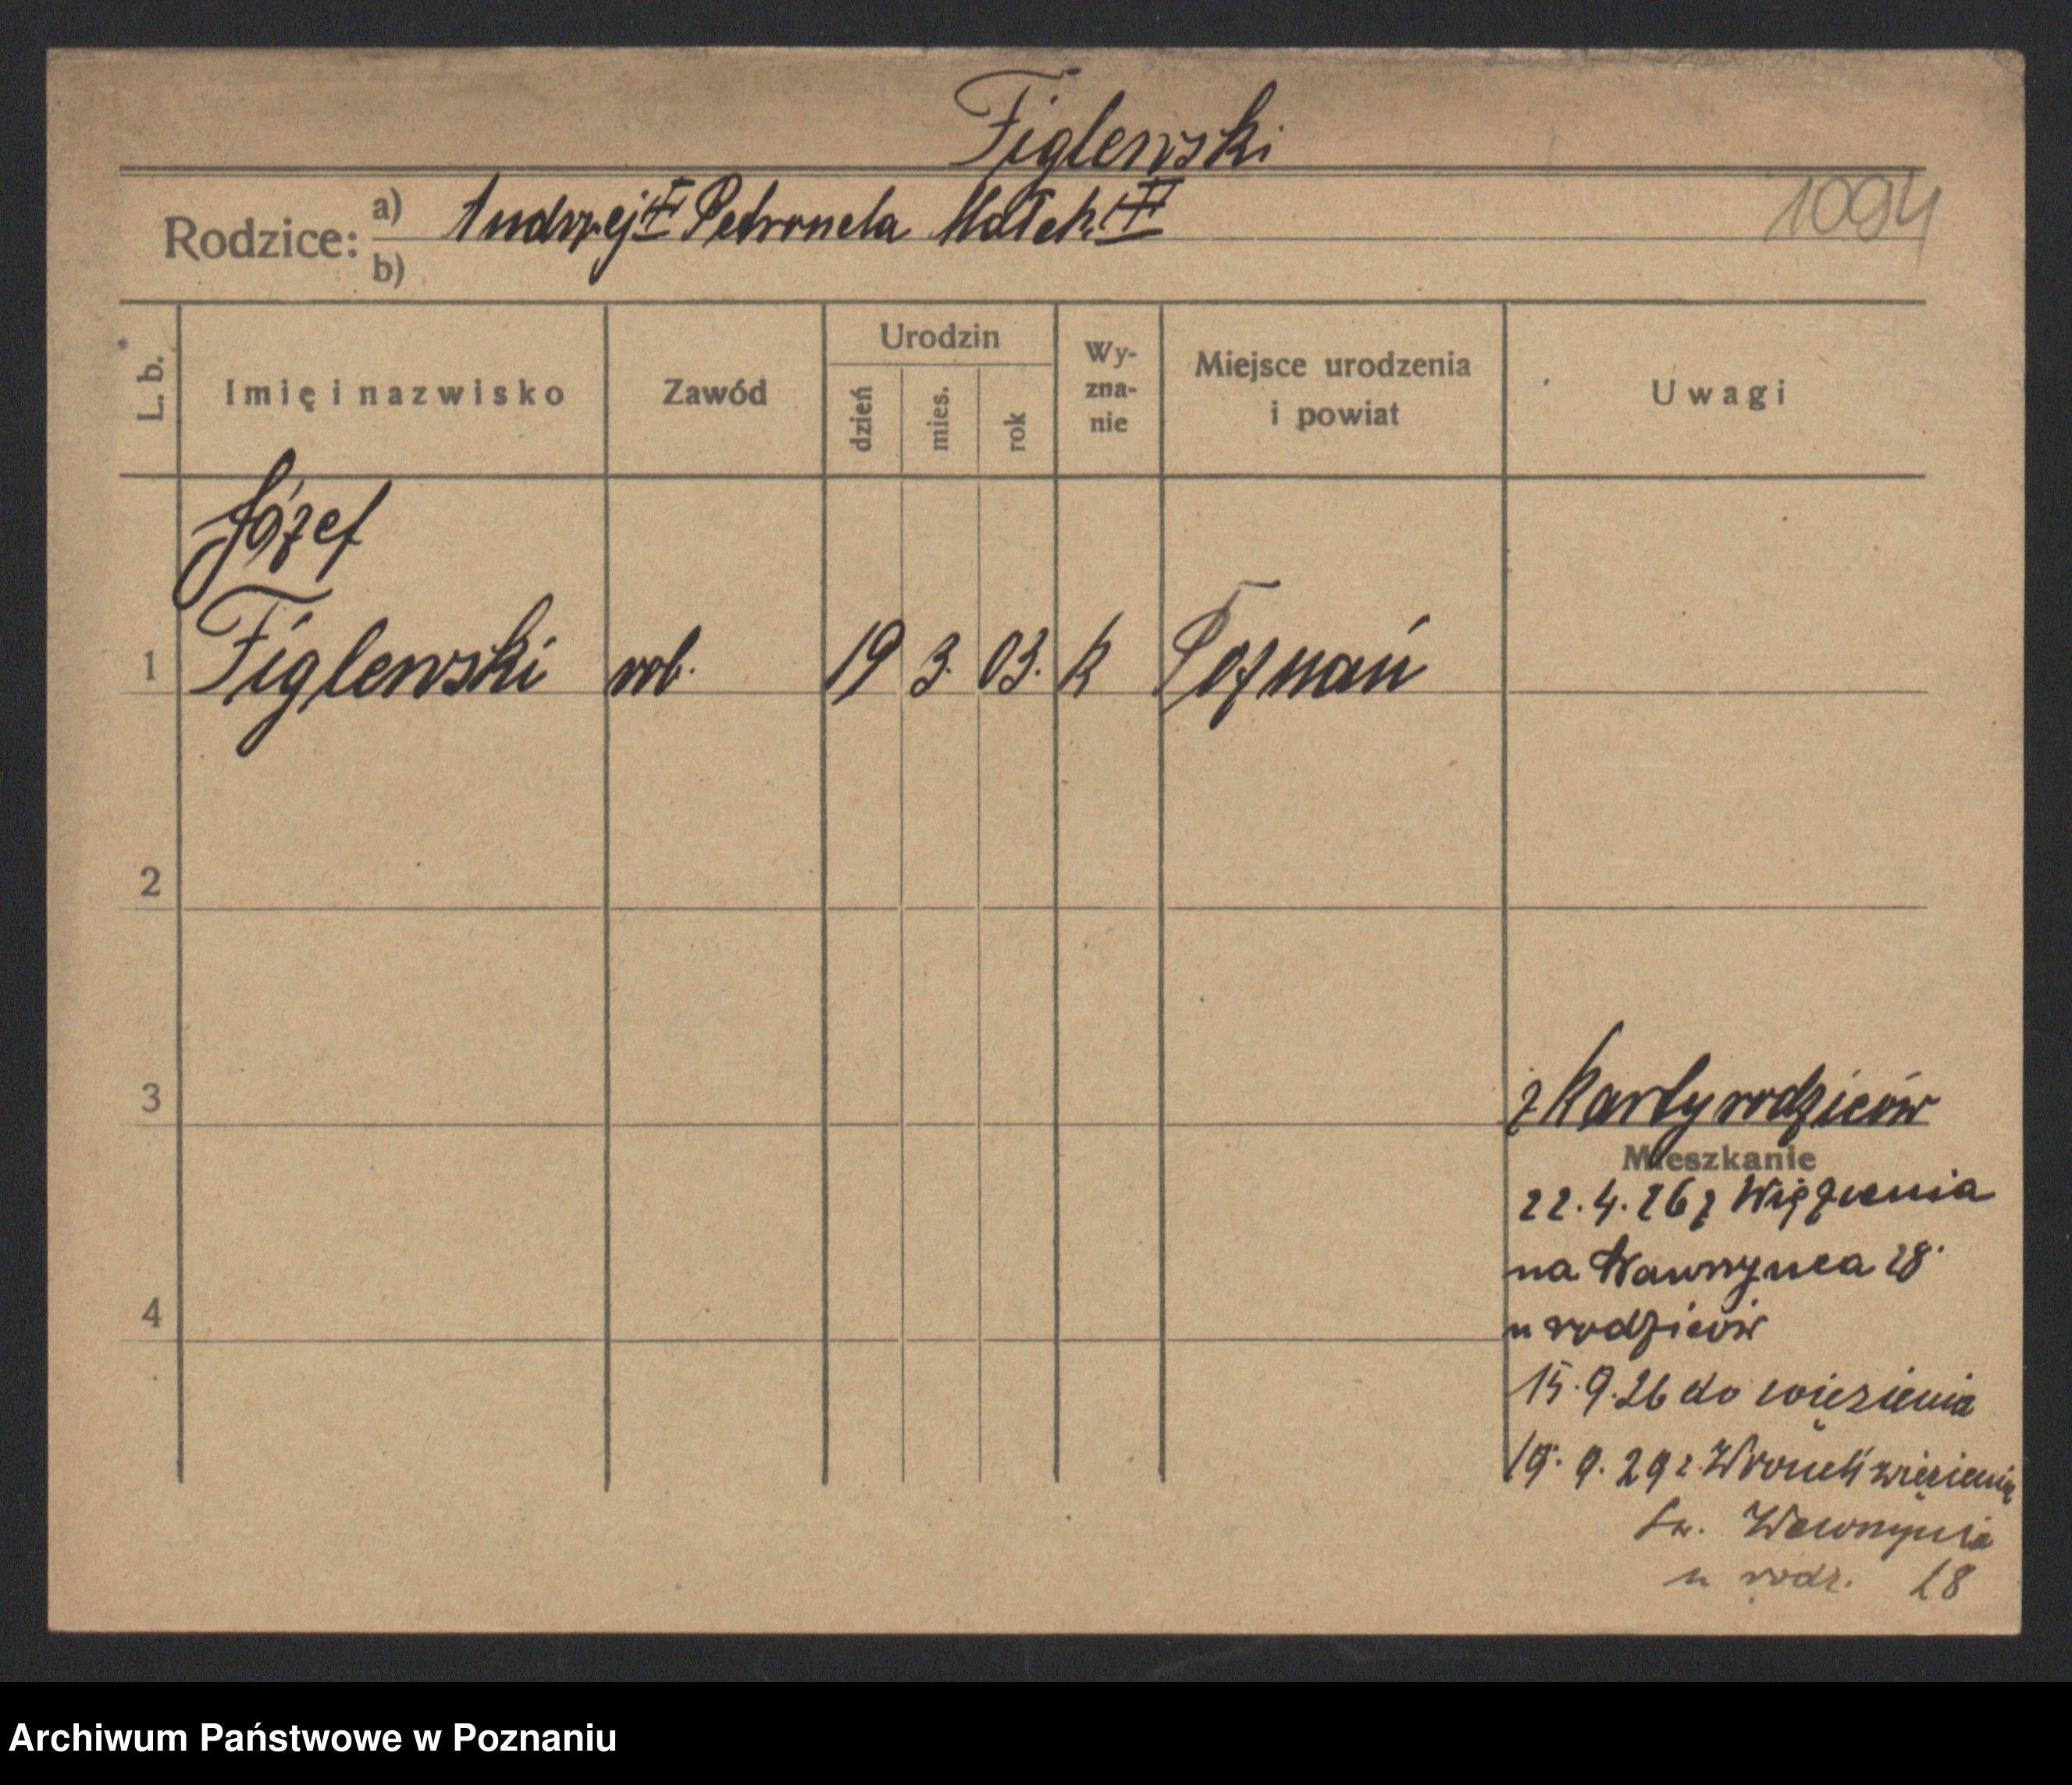 Figlewski
Rodzice: a) Andrzej II Petronela Małek II 1094
b)
L. b. Imię i nazwisko Zawód Urodzin dzień mies. rok Wy-zna-nie Miejsce urodzenia i powiat Uwagi
Józef
1 Figlewski rob. 19 3. 03. k Poznań
2
3 z Karty rodziców
Mieszkanie
22.4.26 z Więzienia
na Wawrzyńca 28.
4 u rodziców
15.9.26 do więzienia
19. 9. 29 z Wronek więzienia
Św. Wawrzyńca
u rodz. 28
Archiwum Państwowe w Poznaniu